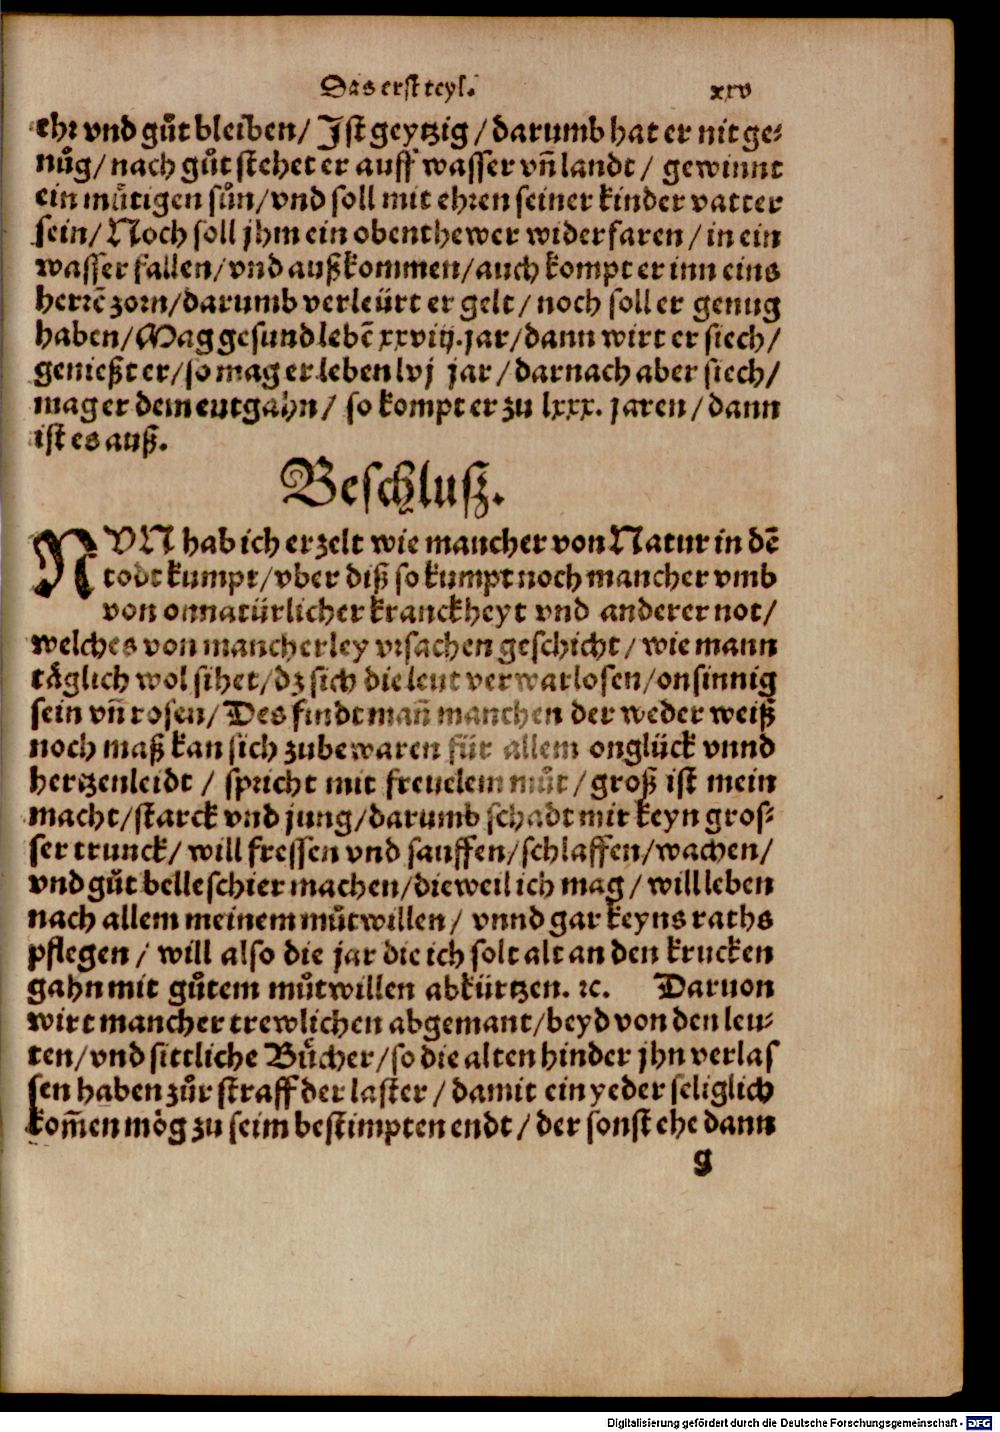 Das erst teyl. xxv
ehr vnd gůt bleiben/ Ist geytzig/ darumb hat er nit ge-
nůg/ nach gůt stehet er auff wasser vñ landt/ gewinnt
ein můtigen sůn/ vnd soll mit ehren seiner kinder vatter
sein/ Noch soll jhm ein obenthewer widerfaren/ in ein
wasser fallen/ vnd außkommen/ auch kompt er inn eins
herrẽ zorn/ darumb verleürt er gelt/ noch soll er genug
haben/ Mag gesund lebẽ xxviij. jar/ dann wirt er siech/
genießt er/ so mag er leben lvj jar/ darnach aber siech/
mag er dem entgahn/ so kompt er zu lxxx. jaren/ dann
ist es auß.
Beschlusz.
NVN hab ich erzelt wie mancher von Natur in dẽ
todt kumpt/ vber diß so kumpt noch mancher vmb
von onnatürlicher kranckheyt vnd anderer not/
welches von mancherley vrsachen geschicht/ wie mann
täglich wol sihet/ dz sich die leut verwarlosen/ onsinnig
sein vñ rosen/ Des findt mañ manchen der weder weiß
noch maß kan sich zubewaren für allem onglück vnnd
hertzenleidt/ spricht mit freuelem můt/ groß ist mein
macht/ starck vnd jung/ darumb schadt mir keyn gros-
ser trunck/ will fressen vnd sauffen/ schlaffen/ wachen/
vnd gůt belle schier machen/ dieweil ich mag/ will leben
nach allem meinem můtwillen/ vnnd gar keyns raths
pflegen/ will also die jar die ich solt alt an den krucken
gahn mit gůtem můtwillen abkürtzen. ꝛc. Daruon
wirt mancher trewlichen abgemant/ beyd von den leu-
ten/ vnd sittliche Bücher/ so die alten hinder jhn verlas
sen haben zůr straff der laster/ damit ein yeder seliglich
kom̃en mög zu seim bestimpten endt/ der sonst ehe dann
g
Digitalisierung gefördert durch die Deutsche Forschungsgemeinschaft - DFG